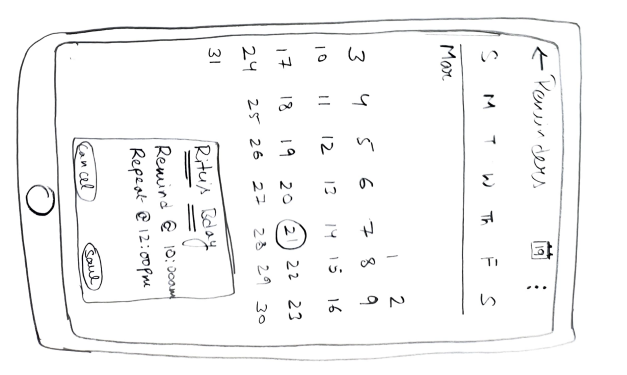 ← Reminders 19 ⋮
S M T W Th F S
Mar
1 2
3 4 5 6 7 8 9
10 11 12 13 14 15 16
17 18 19 20 21 22 23
24 25 26 27 28 29 30
31
Ritu's Bday
Remind @ 10:00am
Repeat @ 12:00pm
Cancel Save